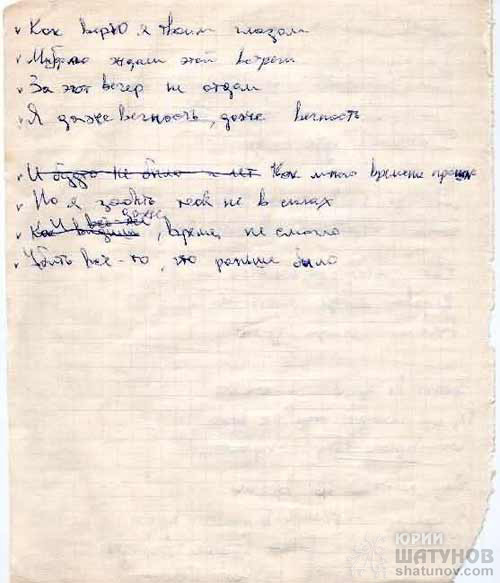 Как верю я твоим глазам
Мы долго ждали этой встречи
За этот вечер не отдам
Я даже вечность, даже вечность
И будто не было лет Как много времени прошло
Но я забыть тебя не в силах
И даже
Как видишь, время не смогло
Убить всё-то, что раньше было
ЮРИЙ
ШАТУНОВ
shatunov.com